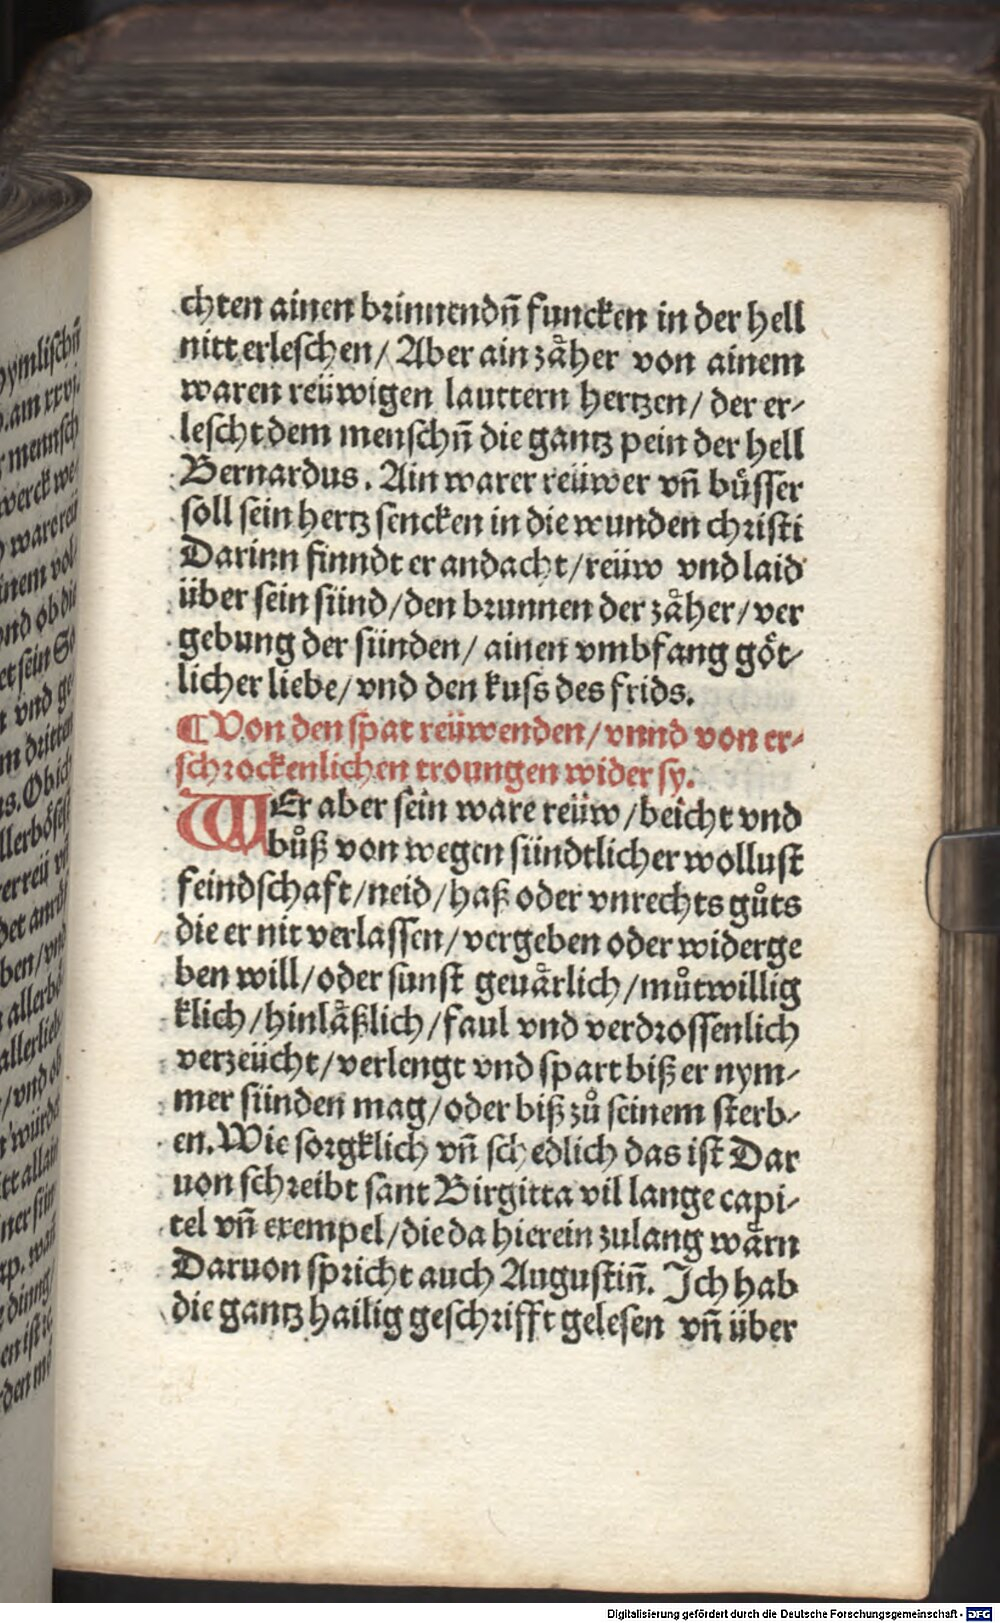 chten ainen brinnendn̄ funcken in der hell
nitt erleschen/ Aber ain zäher von ainem
waren reüwigen lauttern hertzen/ der er-
lescht dem menschn̄ die gantz pein der hell
Bernardus. Ain warer reüwer vn̄ bu̍sser
soll sein hertz sencken in die wunden christi
Darinn finndt er andacht/reüw vnd laid
über sein sünd/den brunnen der zäher/ver
gebung der sünden/ ainen vmbfang göt-
licher liebe/vnd den kuss des frids.
¶Von den spat reüwenden/vnnd von er-
schrockenlichen troungen wider sy.
WEr aber sein ware reüw/beicht vnd
bůß von wegen sündtlicher wollust
feindschaft/neid/haß oder vnrechts gůts
die er nit verlassen/vergeben oder widerge
ben will/oder sunst geuärlich/můtwillig
klich/hinläßlich/faul vnd verdrossenlich
verzeücht/verlengt vnd spart biß er nym-
mer sünden mag/oder biß zů seinem sterb-
en. Wie sorgklich vn̄ schedlich das ist Dar
uon schreibt sant Birgitta vil lange capi-
tel vn̄ exempel/die da hierein zulang wärn
Daruon spricht auch Augustin̄. Ich hab
die gantz hailig geschrifft gelesen vn̄ über
Digitalisierung gefördert durch die Deutsche Forschungsgemeinschaft - DFG